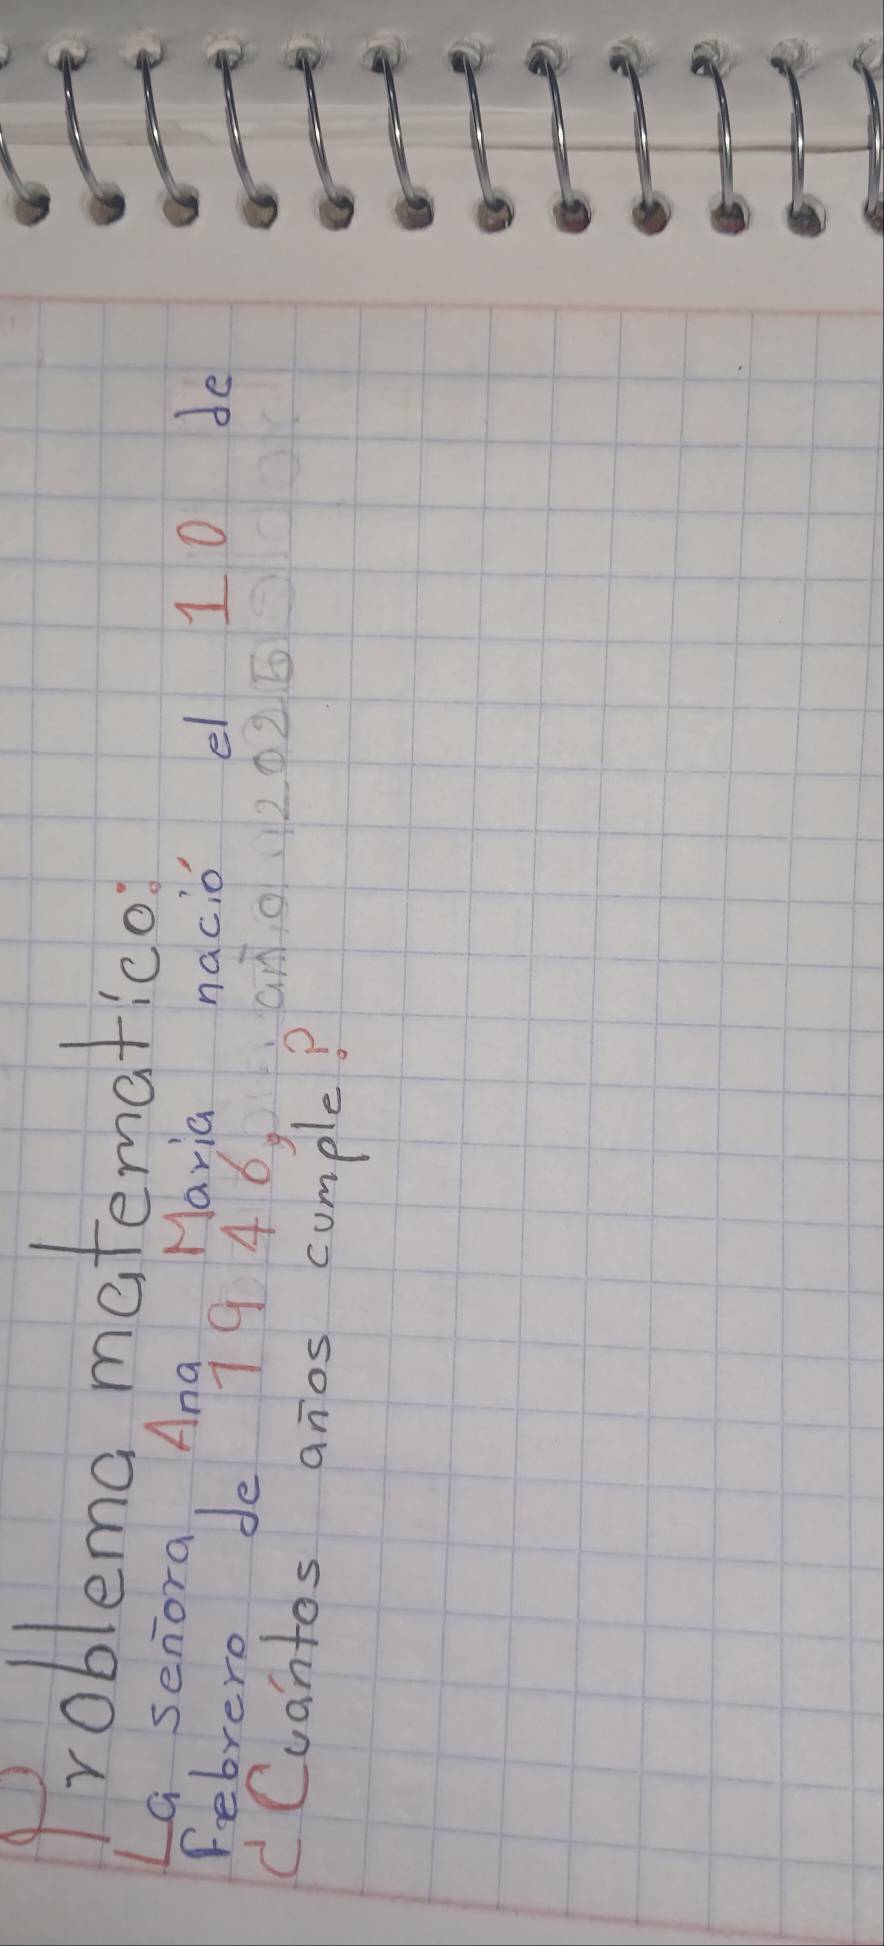 Problema matematico:
La señora Ana Maria nació el 10 de
febrero de 1946, año 2025
¿Cuántos años cumple?